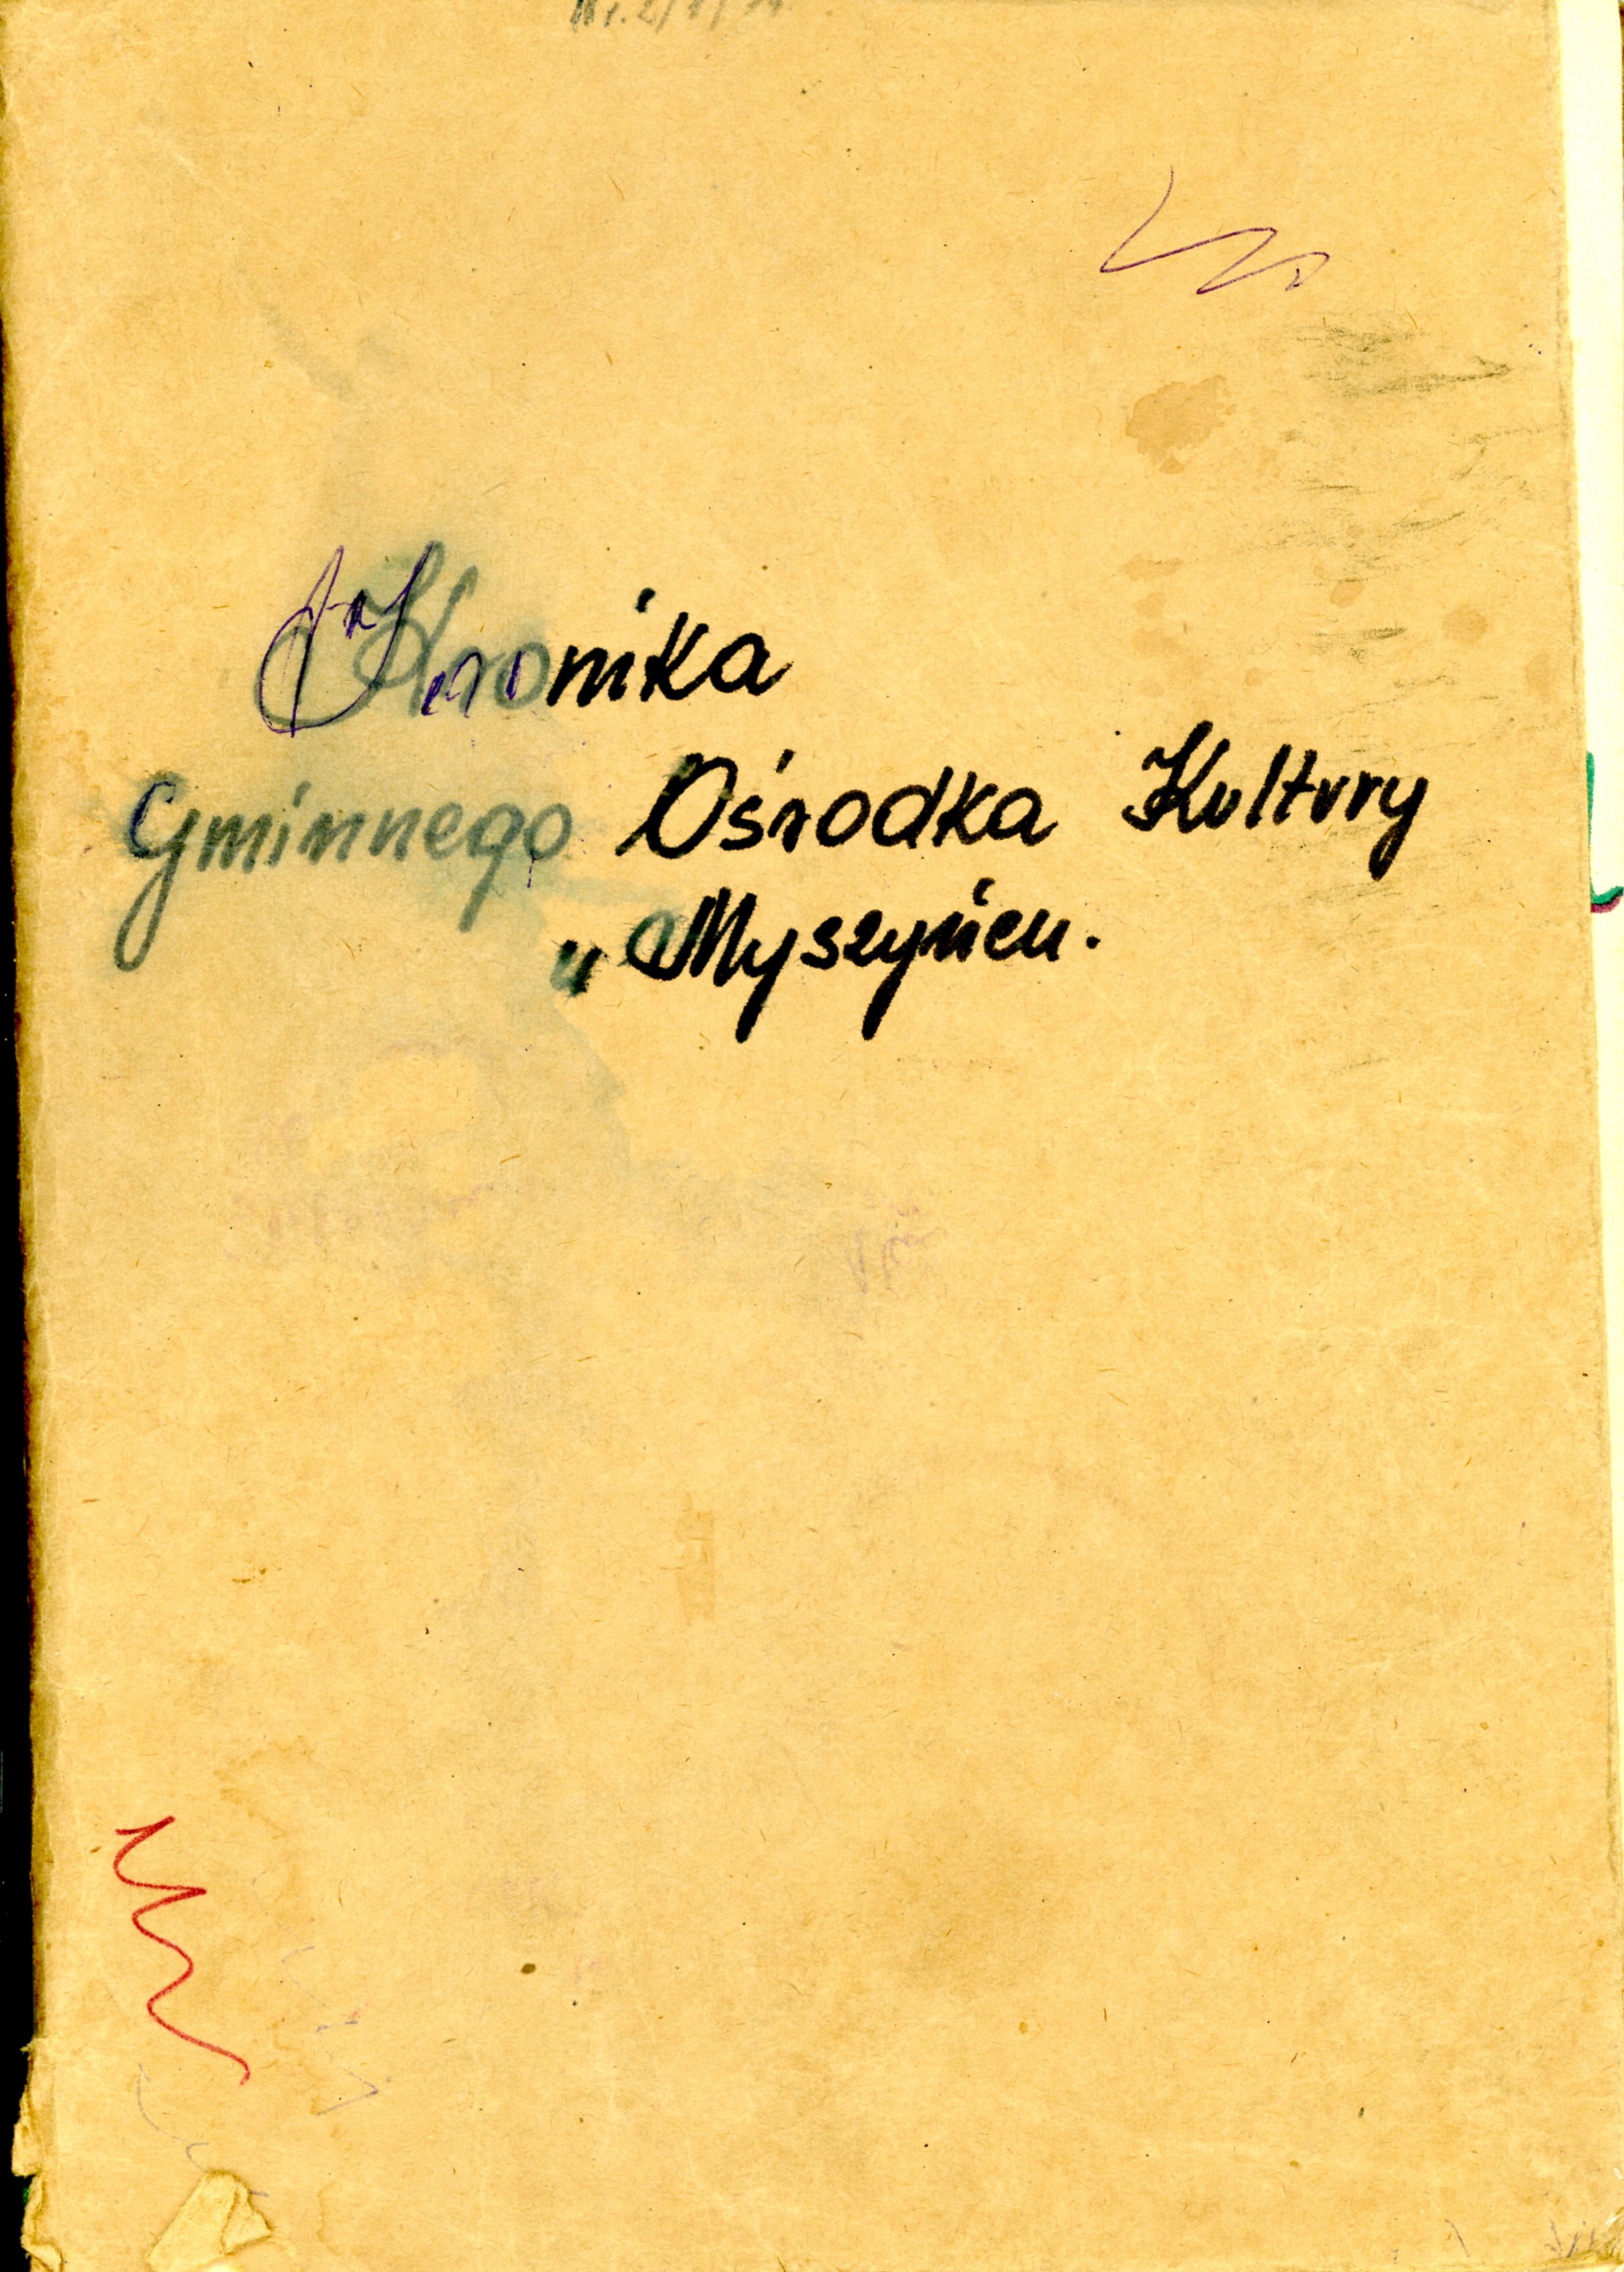 Kronika
Gminnego Ośrodka Kultury
w Myszyńcu.